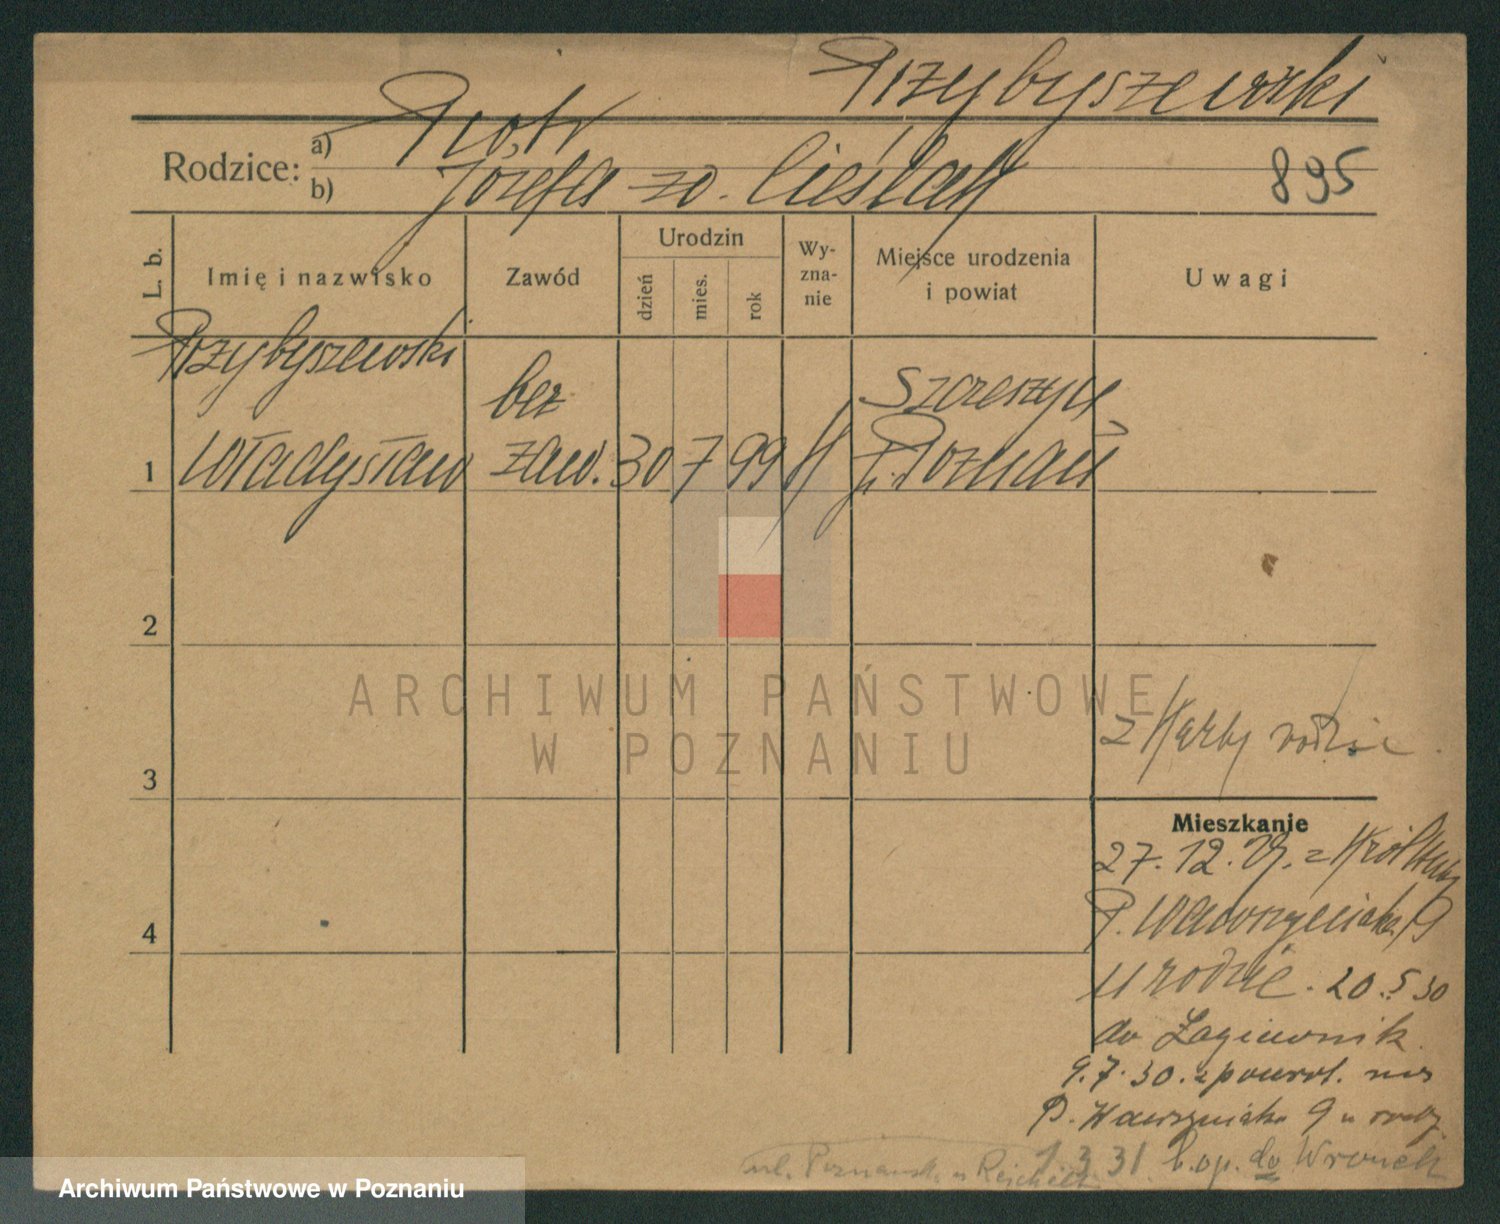 Przybyszewski
Rodzice: a) Piotr
b) Józefa zd. Cieślak
895
L. b. Imię i nazwisko Zawód Urodzin dzień mies. rok Wy-zna-nie Miejsce urodzenia i powiat Uwagi
Przybyszewski bez Szczeszyn
1 Władysław zaw. 30 7 99 K p. Poznań
2
3
z Karty rodzic
4
Mieszkanie
27.12.29. z Król Huty
P. Wawrzyniaka 19
u rodzic. 20.5 30
do Łagiewnik
9.7.30. z powrot. na
P. Wawrzyniaka 9 u rodz.
1.3.31. b. op. do Wronek
ul. Poznańsk. u
ARCHIWUM PAŃSTWOWE
W POZNANIU
Archiwum Państwowe w Poznaniu